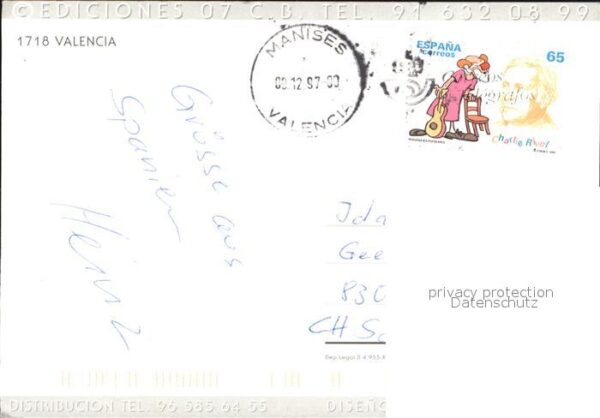 © EDICIONES 07 C.B. TEL. 91 632 08 99
1718 VALENCIA
MANISES
VALENCIA
ESPAÑA
correos
65
Charlie Rivel
Grüsse aus
Spanien
Heinz
Ida
Gee
830
CH S
privacy protection
Datenschutz
Dep. Legal B 4.955-X
DISTRIBUCION TEL. 96 585 64 55
DISEÑO